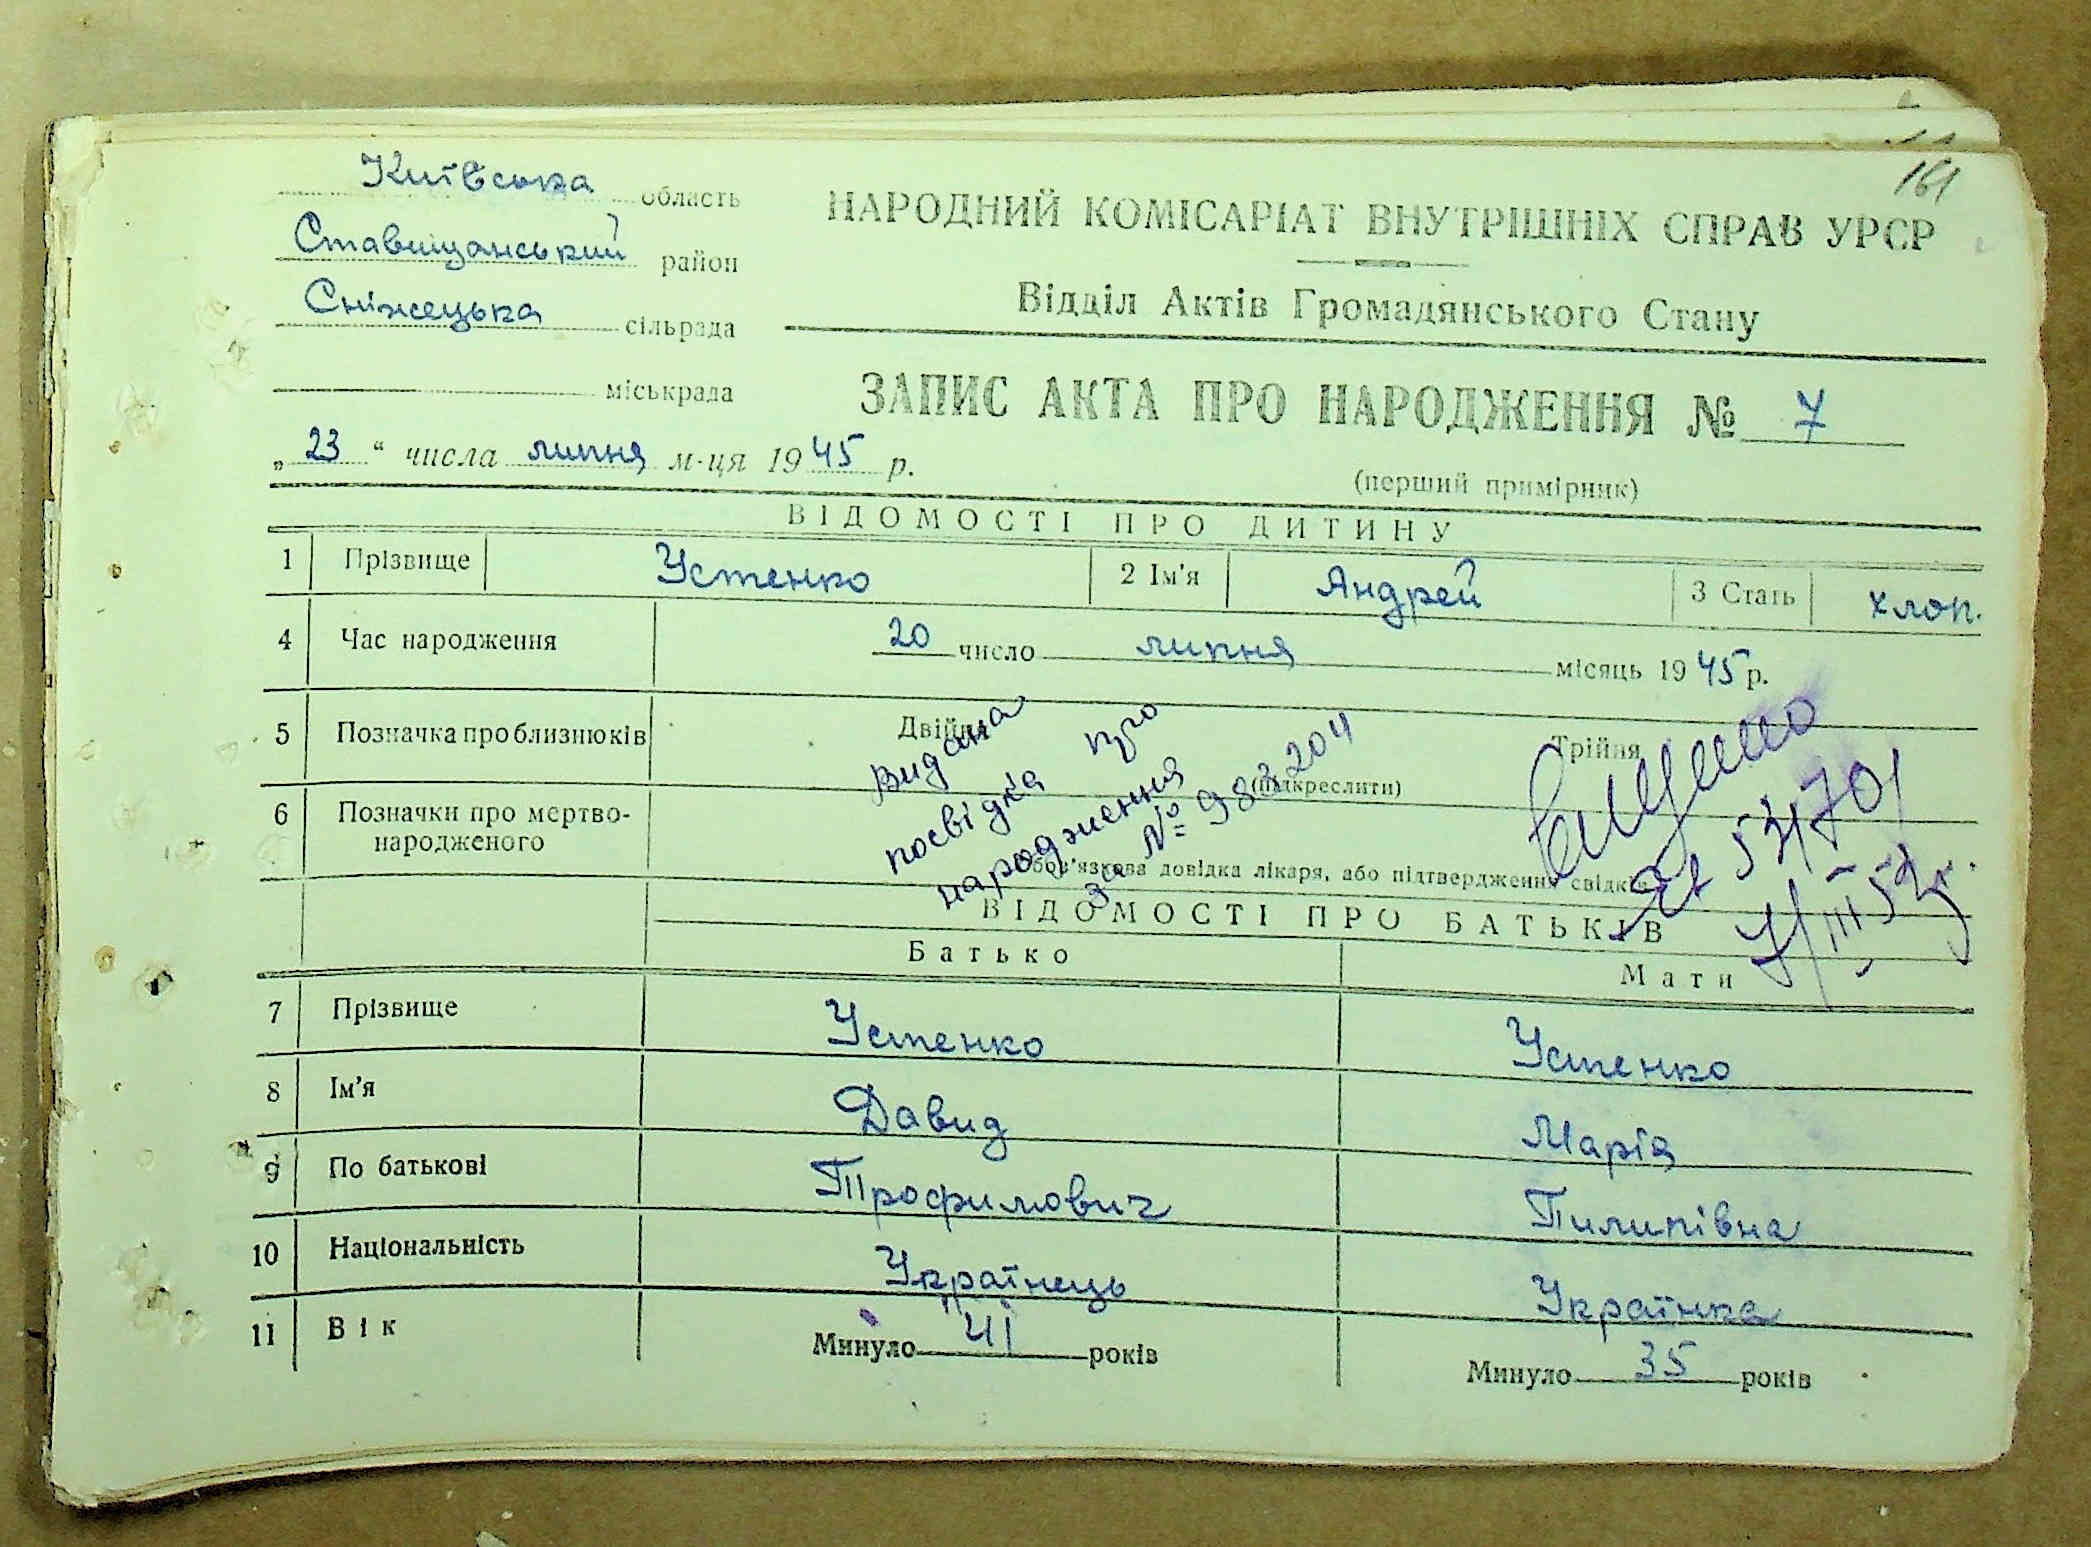 161
Київська область
Ставищанський район
Сніжецька сільрада
міськрада
НАРОДНИЙ КОМІСАРІАТ ВНУТРІШНІХ СПРАВ УРСР
Відділ Актів Громадянського Стану
ЗАПИС АКТА ПРО НАРОДЖЕННЯ № 7
„ 23 “ числа липня м-ця 1945 р.
(перший примірник)
ВІДОМОСТІ ПРО ДИТИНУ
1 Прізвище Устенко 2 Ім'я Андрей 3 Стать хлоп.
4 Час народження 20 число липня місяць 1945 р.
5 Позначка про близнюків Двійня Трійня
(підкреслити)
6 Позначки про мертво-
народженого
Обов'язкова довідка лікаря, або підтвердження свідків
Видана
посвідка про
народження
за № 983204
ВІДОМОСТІ ПРО БАТЬКІВ
Батько Мати
7 Прізвище Устенко Устенко
8 Ім'я Давид Марія
9 По батькові Трофимович Пилипівна
10 Національність Українець Українка
11 Вік Минуло 41 років Минуло 35 років